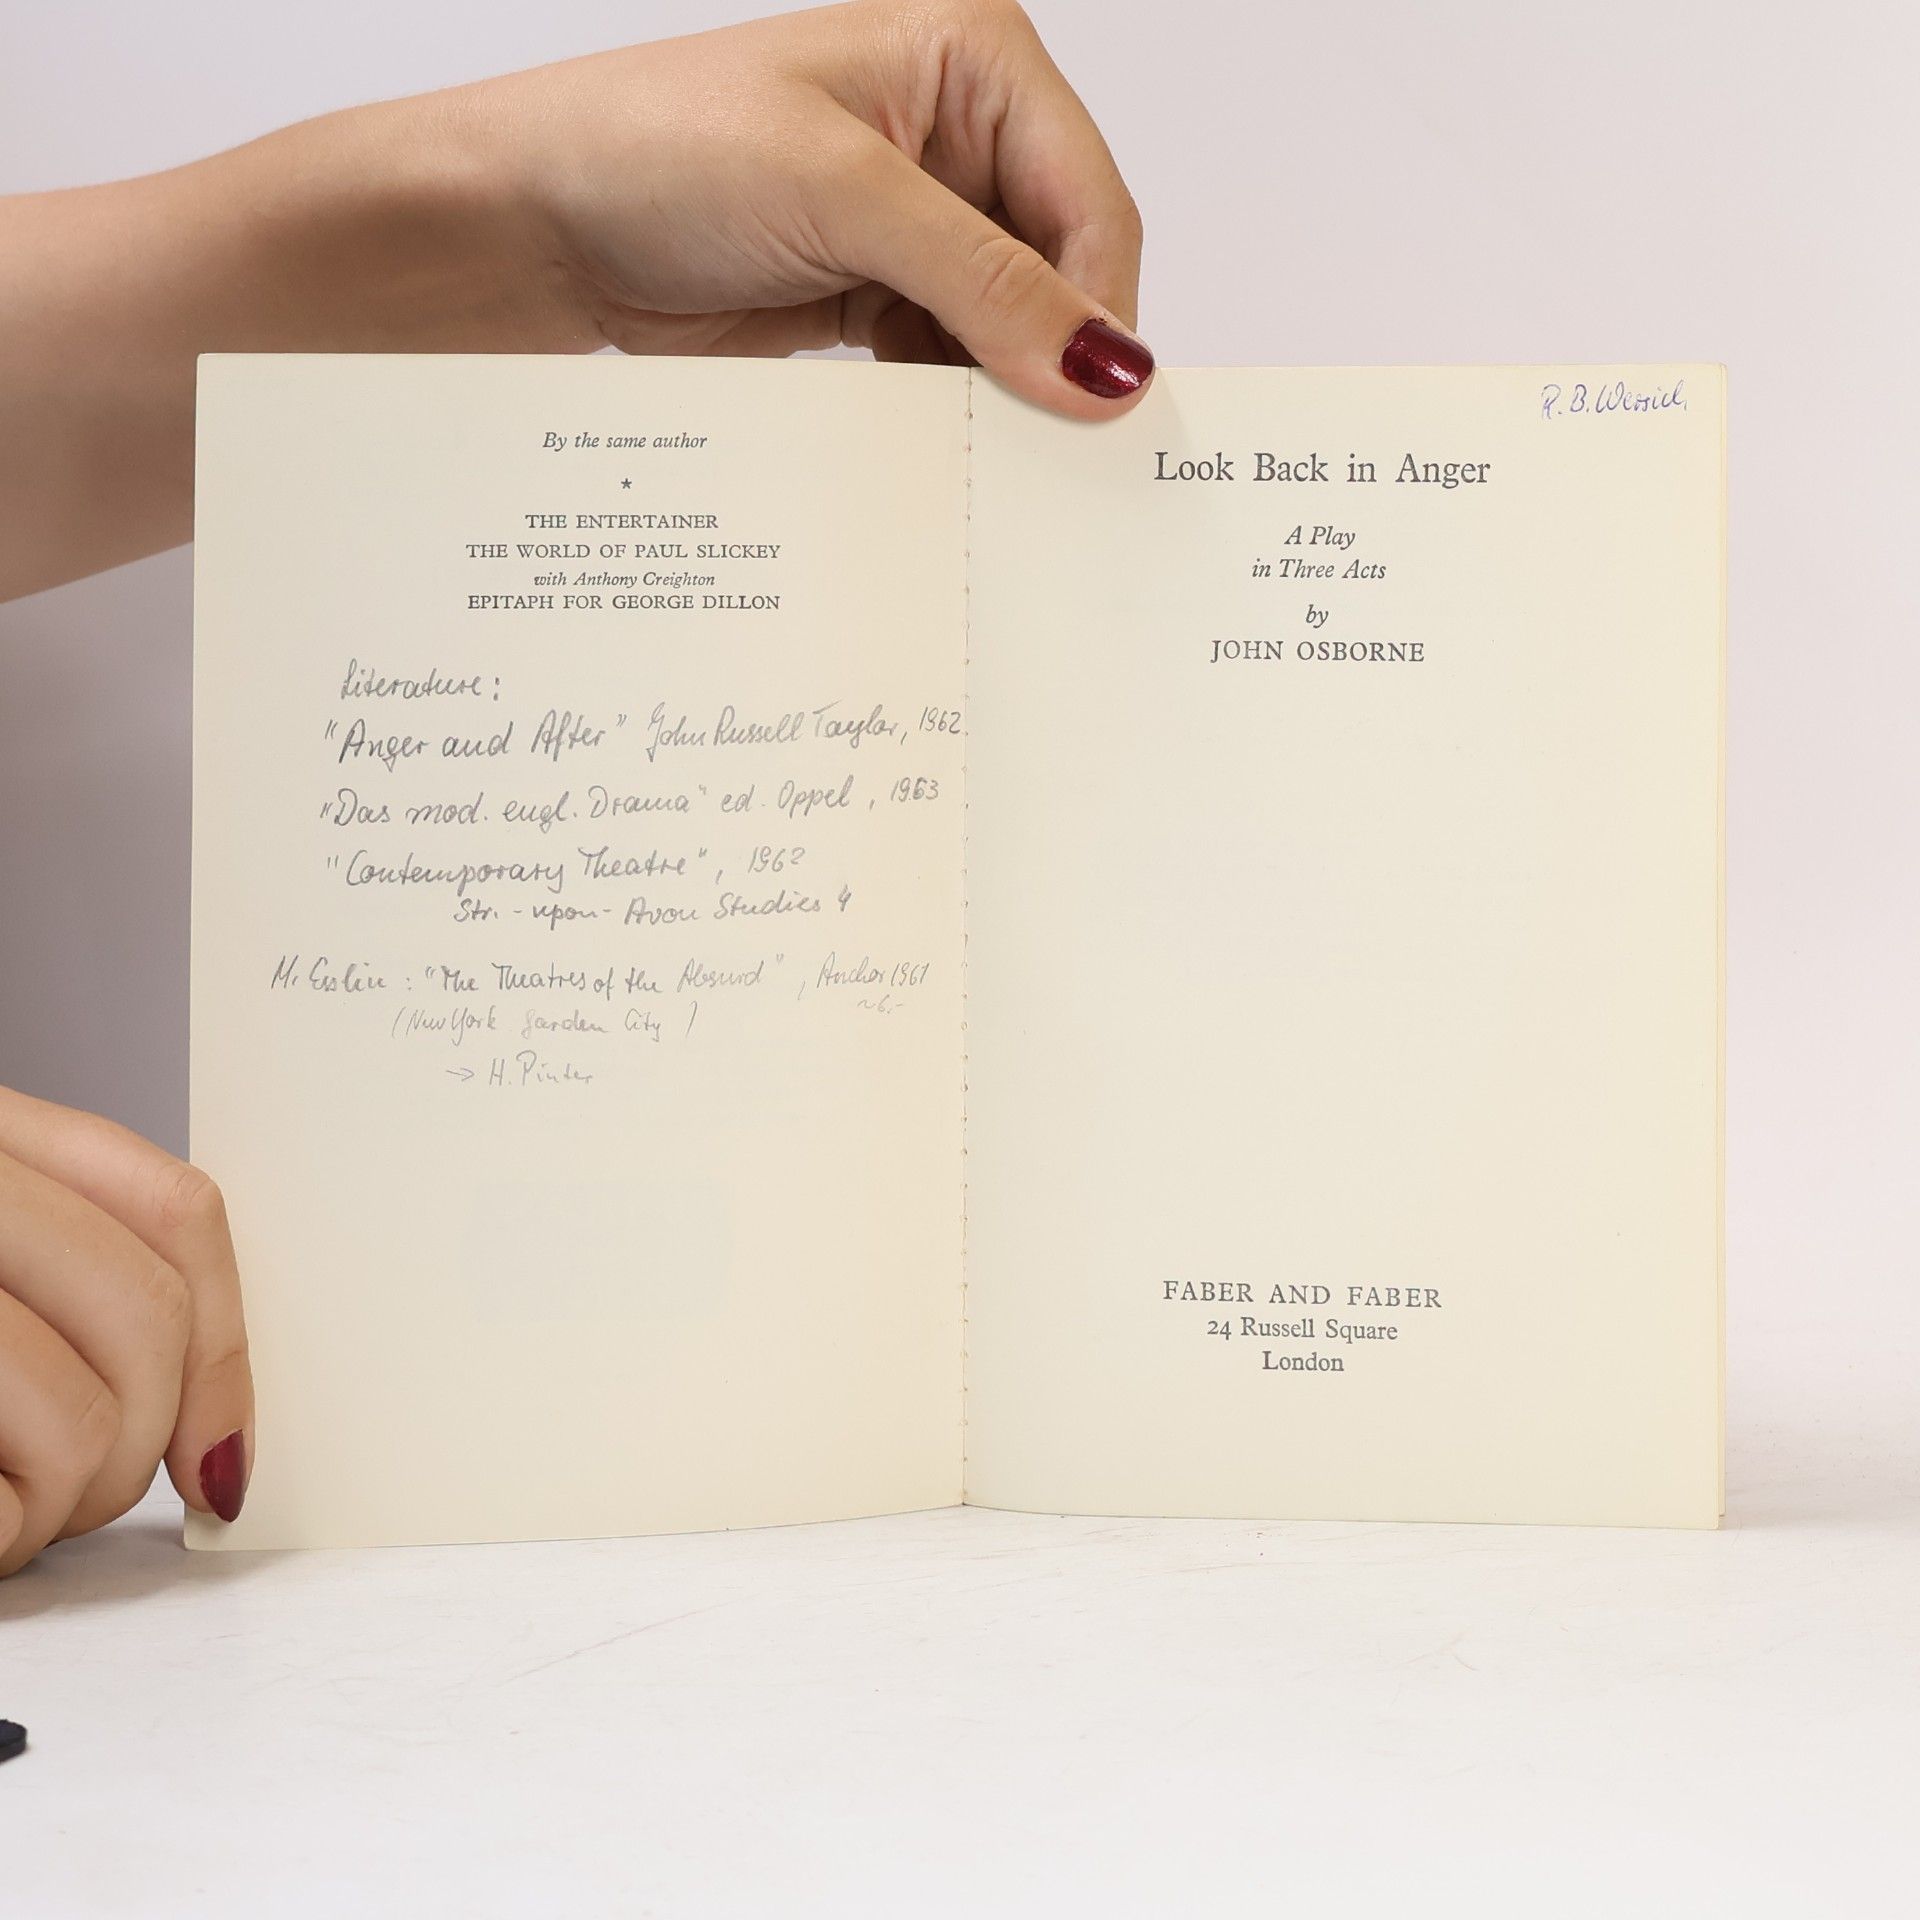 By the same author
*
THE ENTERTAINER
THE WORLD OF PAUL SLICKEY
with Anthony Creighton
EPITAPH FOR GEORGE DILLON
Literature:
"Anger and After" John Russell Taylor, 1962.
"Das mod. engl. Drama" ed. Oppel, 1963.
"Contemporary Theatre", 1962
Str. - upon - Avon Studies 4
M. Esslin: "The Theatres of the Absurd", Anchor 1961
~6.-
(New York Garden City)
→ H. Pinter
R. B.
Look Back in Anger
A Play
in Three Acts
by
JOHN OSBORNE
FABER AND FABER
24 Russell Square
London